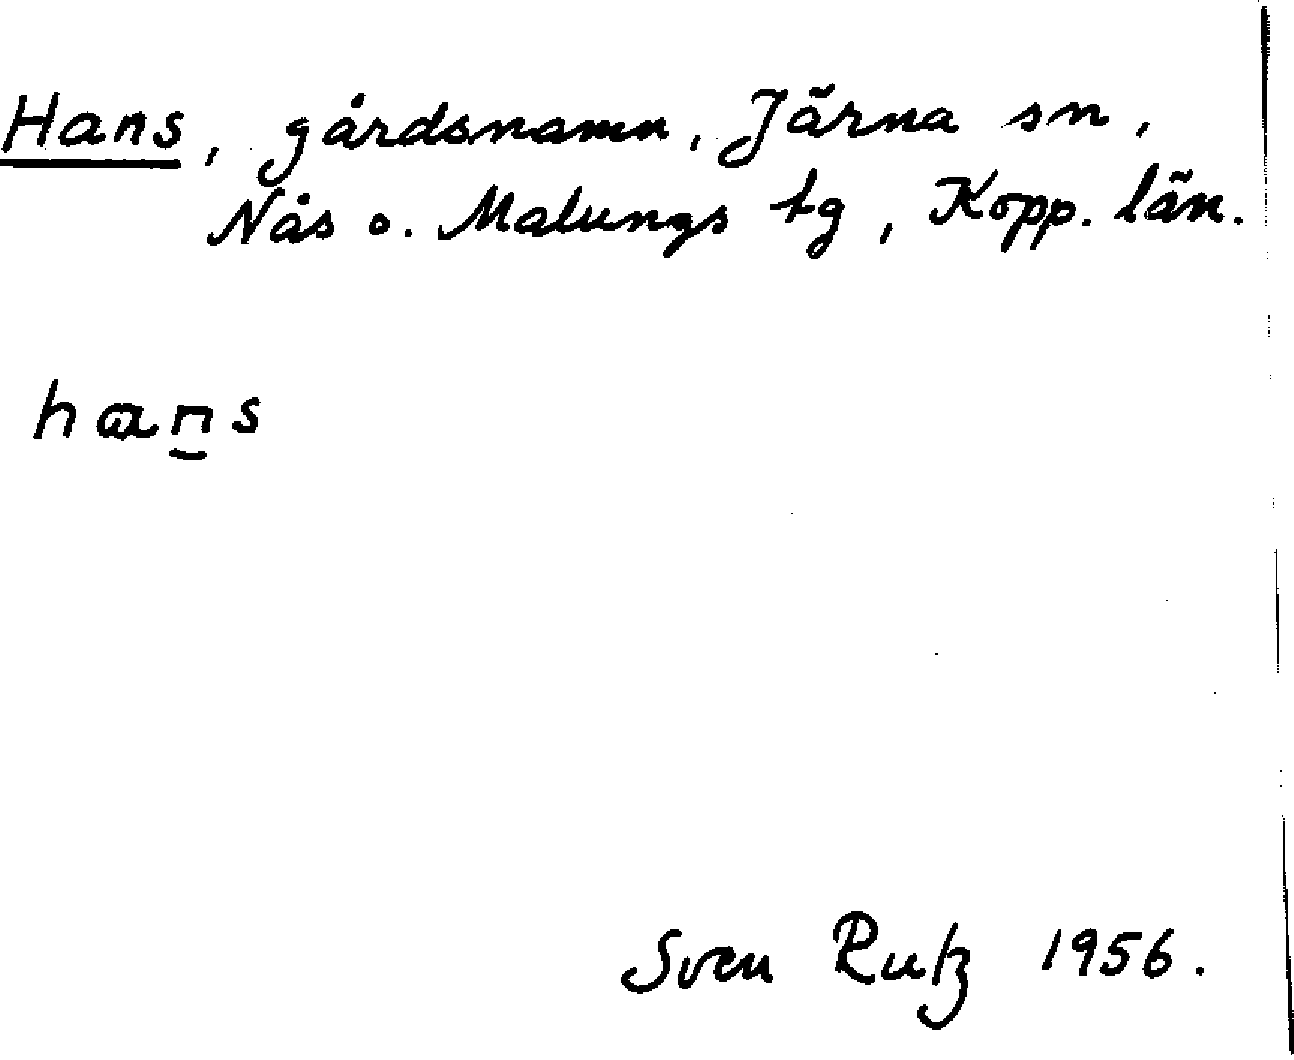 Hans, gårdsnamn, Järna sn,
Nås o. Malungs tg, Kopp. län.
hans
Sven Rutz 1956.